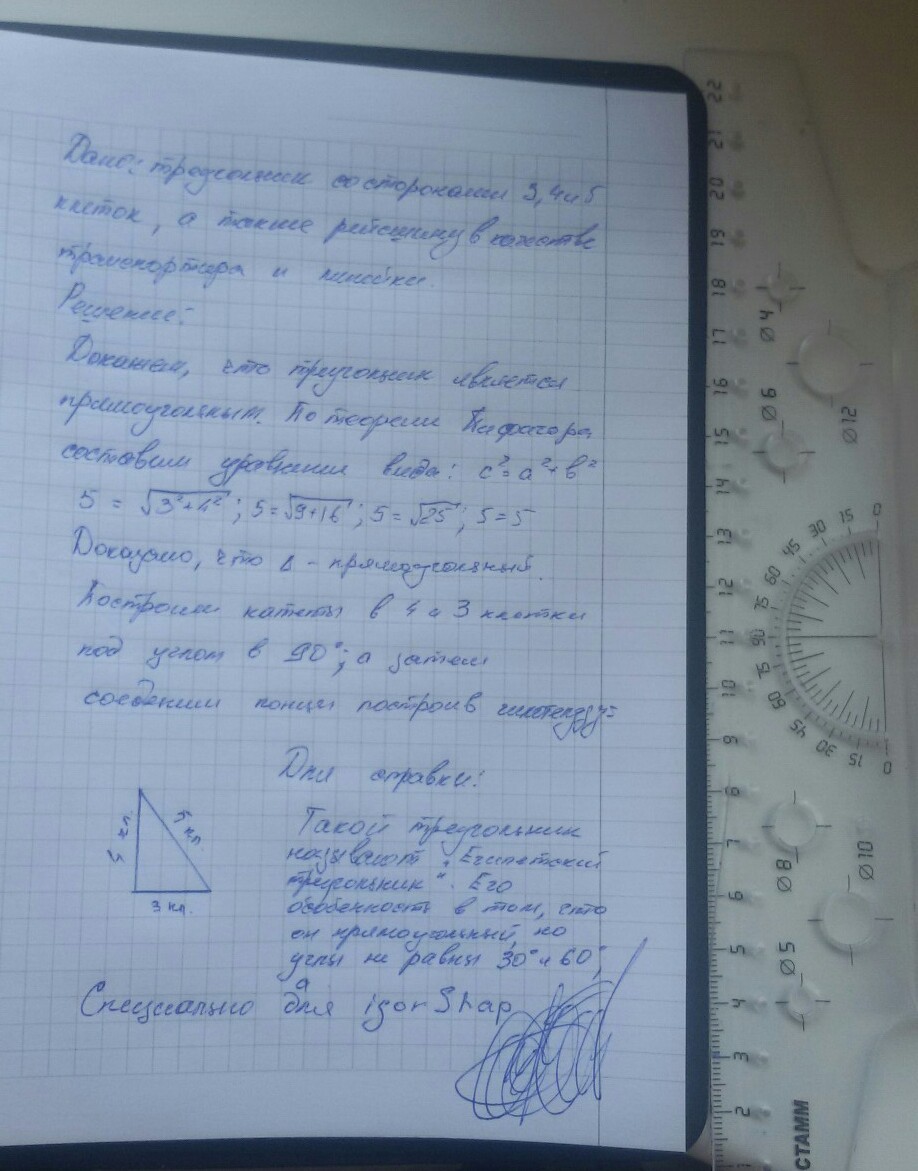 Дано: треугольник со сторонами 3, 4 и 5
клеток, а также рейсшину в качестве
транспортира и линейки.
Решение:
Докажем, что треугольник является
прямоугольным. По теореме Пифагора
составим уравнение вида: c²=a²+b²
5 = √3²+4²; 5=√9+16; 5=√25; 5=5
Доказано, что Δ - прямоугольный.
Построим катеты в 4 и 3 клетки
под углом в 90°; а затем
соединим концы построив гипотенузу=
4 кл.
5 кл
3 кл.
Для справки:
Такой треугольник
называют „Египетский
треугольник". Его
особенность в том, что
он прямоугольный, но
углы не равны 30° и 60°,
а
Специально для igorShap
22
21
20
19
18
17
16
15
14
13
12
11
10
9
8
7
6
5
4
3
2
Ø4
Ø6
Ø12
Ø8
Ø10
Ø5
0
15
30
45
60
75
90
75
60
45
30
15
0
СТАММ